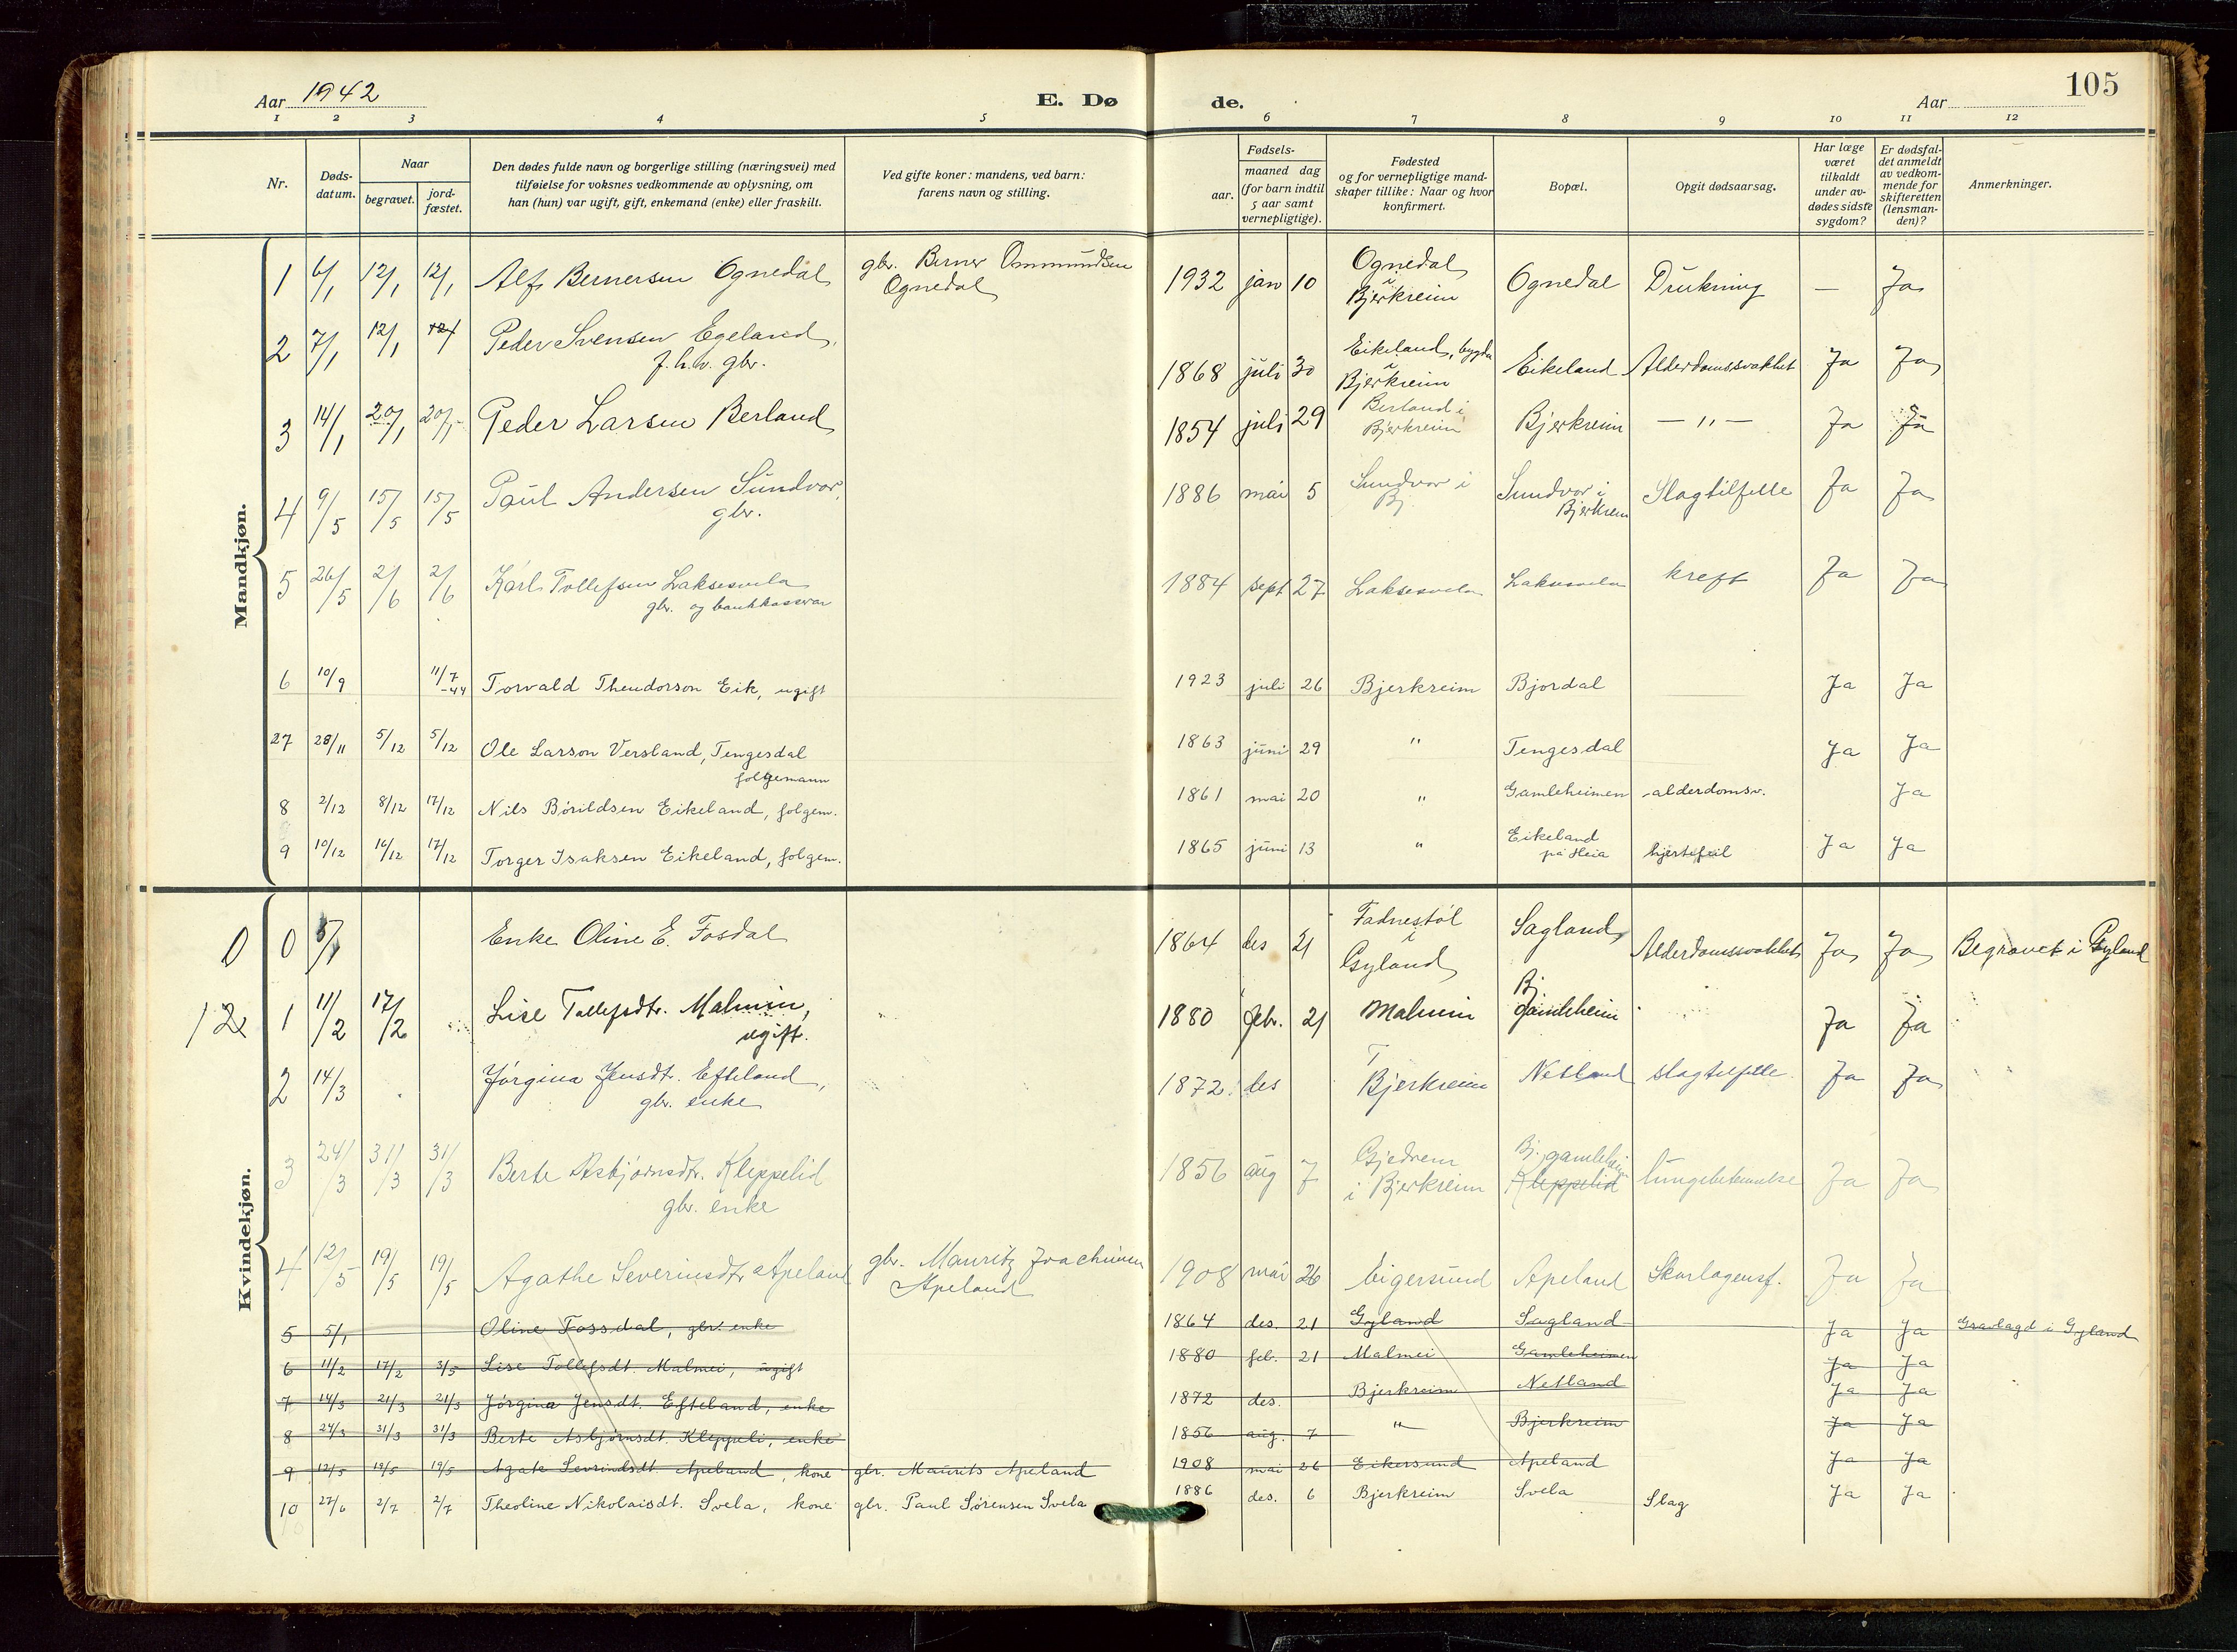 Aar 1942
E. Dø
de.
Aar
105
1 2 3 4 5 6 7 8 9 10 11 12
Nr.
Døds-
datum.
Naar
begravet.
jord-
fæstet.
Den dødes fulde navn og borgerlige stilling (næringsvei) med
tilføielse for voksnes vedkommende av oplysning, om
han (hun) var ugift, gift, enkemand (enke) eller fraskilt.
Ved gifte koner: mandens, ved barn:
farens navn og stilling.
Fødsels-
aar.
maaned dag
(for barn indtil
5 aar samt
vernepligtige).
Fødested
og for vernepligtige mand-
skaper tillike: Naar og hvor
konfirmert.
Bopæl.
Opgit dødsaarsag.
Har læge
været
tilkaldt
under av-
dødes sidste
sygdom?
Er dødsfal-
det anmeldt
av vedkom-
mende for
skifteretten
(lensman-
den)?
Anmerkninger.
Mandkjøn.
1 6/1 12/1 12/1 Alf Bernersen Ognedal gbr. Berner Ommundsen
Ognedal
1932 jan 10 Ognedal
i
Bjerkreim
Ognedal Drukning — Ja
2 7/1 12/1 12/1 Peder Svensen Egeland,
f.h.v. gbr.
1868 juli 30 Eikeland, bygda
i
Bjerkreim
Eikeland Alderdomssvakhet Ja Ja
3 14/1 20/1 20/1 Peder Larsen Berland
1854 juli 29 Berland i
Bjerkreim
Bjerkreim — " — Ja Ja
4 9/5 15/5 15/5 Paul Andersen Sundvor,
gbr.
1886 mai 5 Sundvor i
Bj.
Sundvor i
Bjerkreim
Slagtilfelle Ja Ja
5 26/5 2/6 2/6 Karl Tollefsen Laksesvela
gbr. og bankkasserar
1884 sept 27 Laksesvela Laksesvela kreft Ja Ja
6 10/9 11/7
-44 Torvald Theodorson Eik, ugift
1923 juli 26 Bjerkreim Bjordal Ja Ja
27 28/11 5/12 5/12 Ole Larson Versland, Tengesdal
folgemann
1863 juni 29 " Tengesdal Ja Ja
8 2/12 8/12 17/12 Nils Bórildsen Eikeland, folgem.
1861 mai 20 " Gamleheimen alderdomsv. Ja
9 10/12 16/12 17/12 Torger Isaksen Eikeland, folgem.
1865 juni 13 " Eikeland
på Heia
hjertefeil Ja Ja
Kvindekjøn.
0 0 5/1 Enke Oline E. Fosdal
1864 des 21 Fadnestøl
i
Gyland
Sagland, Alderdomssvakhet Ja Ja Begravet i Gyland
12 1 11/2 17/2 Lise Tollefsdtr. Malmin,
ugift.
1880 febr. 21 Malmin Bj.
gamleheim
Ja Ja
2 14/3 Jørgina Jensdtr. Efteland,
gbr. enke
1872 des Bjerkreim Netland slagtilfelle Ja Ja
3 24/3 31/3 31/3 Berte Asbjørnsdtr. Kleppelid
gbr. enke
1856 aug 7 Gjedrem
i Bjerkreim
Bj. gamleheim
Kleppelid
lungebetennelse Ja Ja
4 12/5 19/5 19/5 Agathe Severinsdtr Apeland gbr. Mauritz Joachimsen
Apeland
1908 mai 26 Eigersund Apeland Skarlagensf. Ja Ja
5 5/1 Oline Fossdal, gbr. enke
1864 des. 21 Gyland Sagland Ja Ja Gravlagd i Gyland
6 11/2 17/2 3/5 Lise Tollefsdt. Malmei, ugift
1880 feb. 21 Malmei Gamleheimen Ja Ja
7 14/3 21/3 21/3 Jørgina Jensdt. Efteland, enke
1872 des. Bjerkreim Netland Ja Ja
8 24/3 31/3 31/3 Berte Asbjørnsdt. Kleppeli, enke
1856 aug. 7 " Bjerkreim Ja Ja
9 12/5 19/5 19/5 Agate Sevrindsdt. Apeland, kone gbr. Maurits Apeland
1908 mai 26 Eikersund Apeland Ja Ja
10 27/6 2/7 2/7 Theoline Nikolaisdt. Svela, kone gbr. Paul Sørensen Svela
1886 des. 6 Bjerkreim Svela Slag Ja Ja